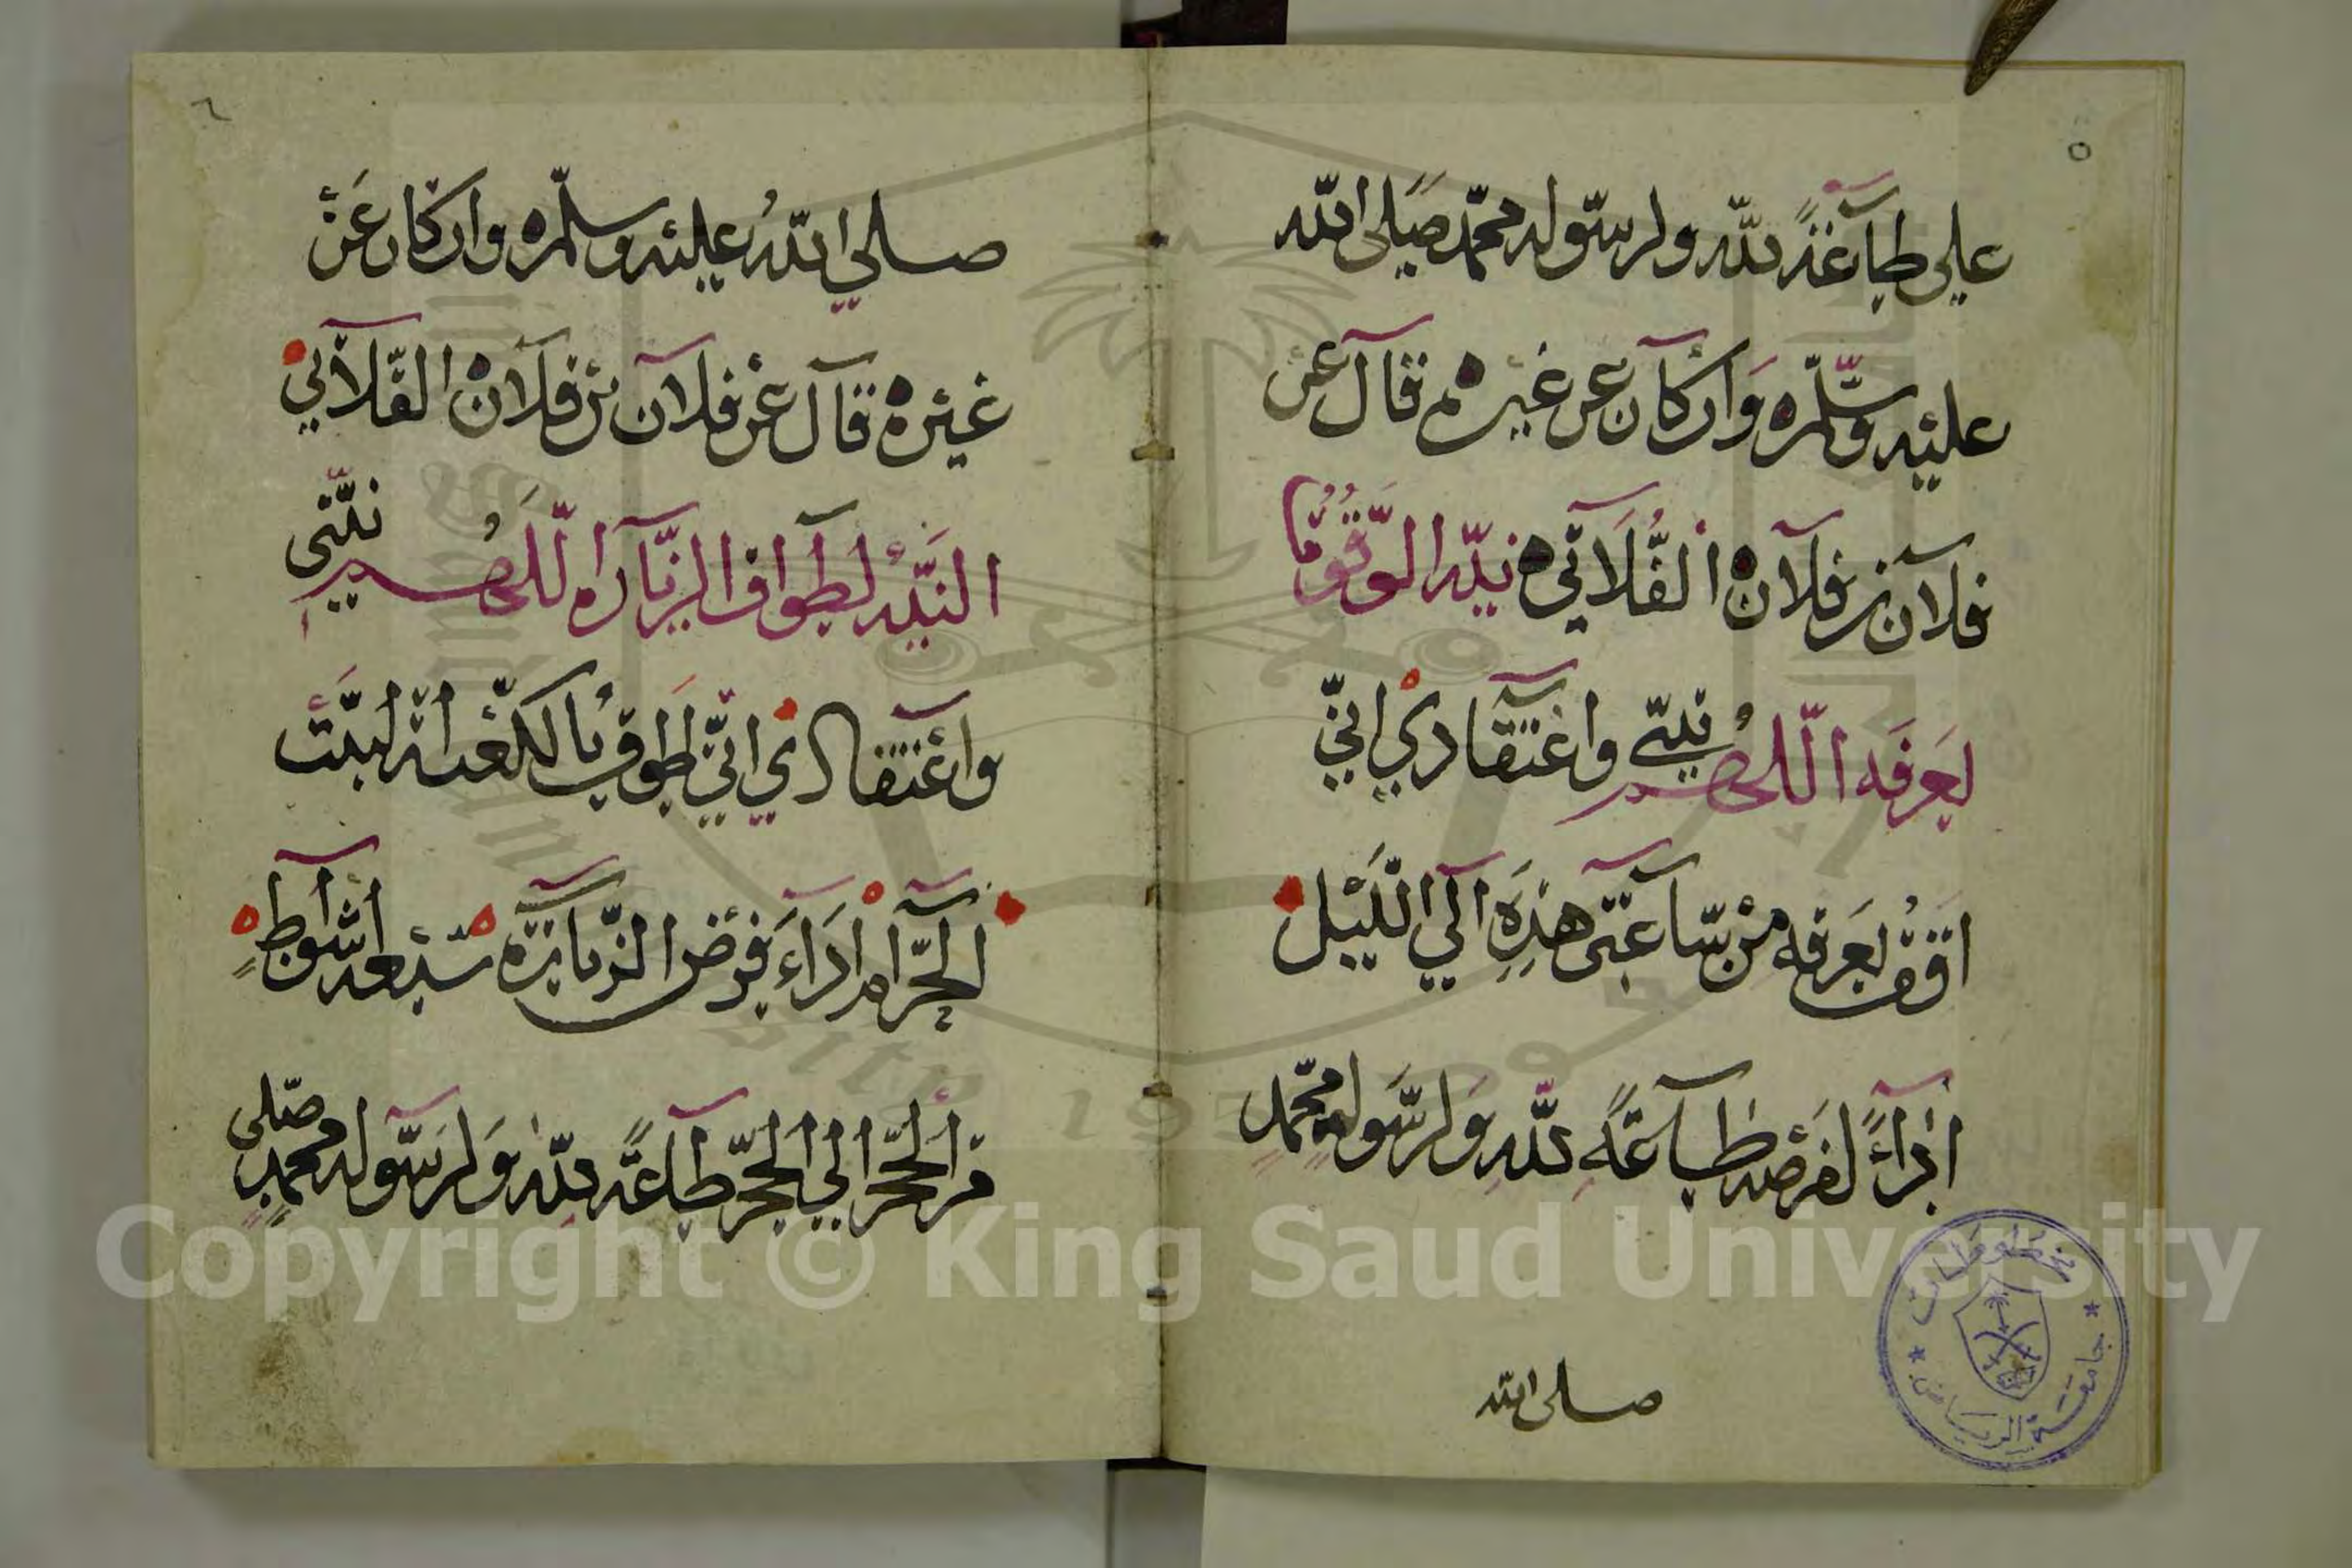 ٥
علي طاعة لله ولرسوله محمد صلى الله
عليه وسلم وان كان عن غيره قال عن
فلان بن فلان الفلاني نية الوقوف
بعرفه اللهم نيتي واعتقادي اني
اقف بعرفه من ساعتي هذه الي الليل
اداءً لفرضه طاعةً لله ولرسوله محمد
صلى الله
مخطوطات
جامعة الرياض
٦
صلي الله عليه وسلم وان كان عن
غيره قال عن فلان بن فلان الفلاني
النية لطواف الزياراه اللهم نيتي
واعتقادي اني اطوف بالكعبة البيت
الحرام اداء فرض الزيارة سبعه اشواط
من الحجر الي الحجر طاعةً لله ولرسوله محمد صلى
Copyright © King Saud University